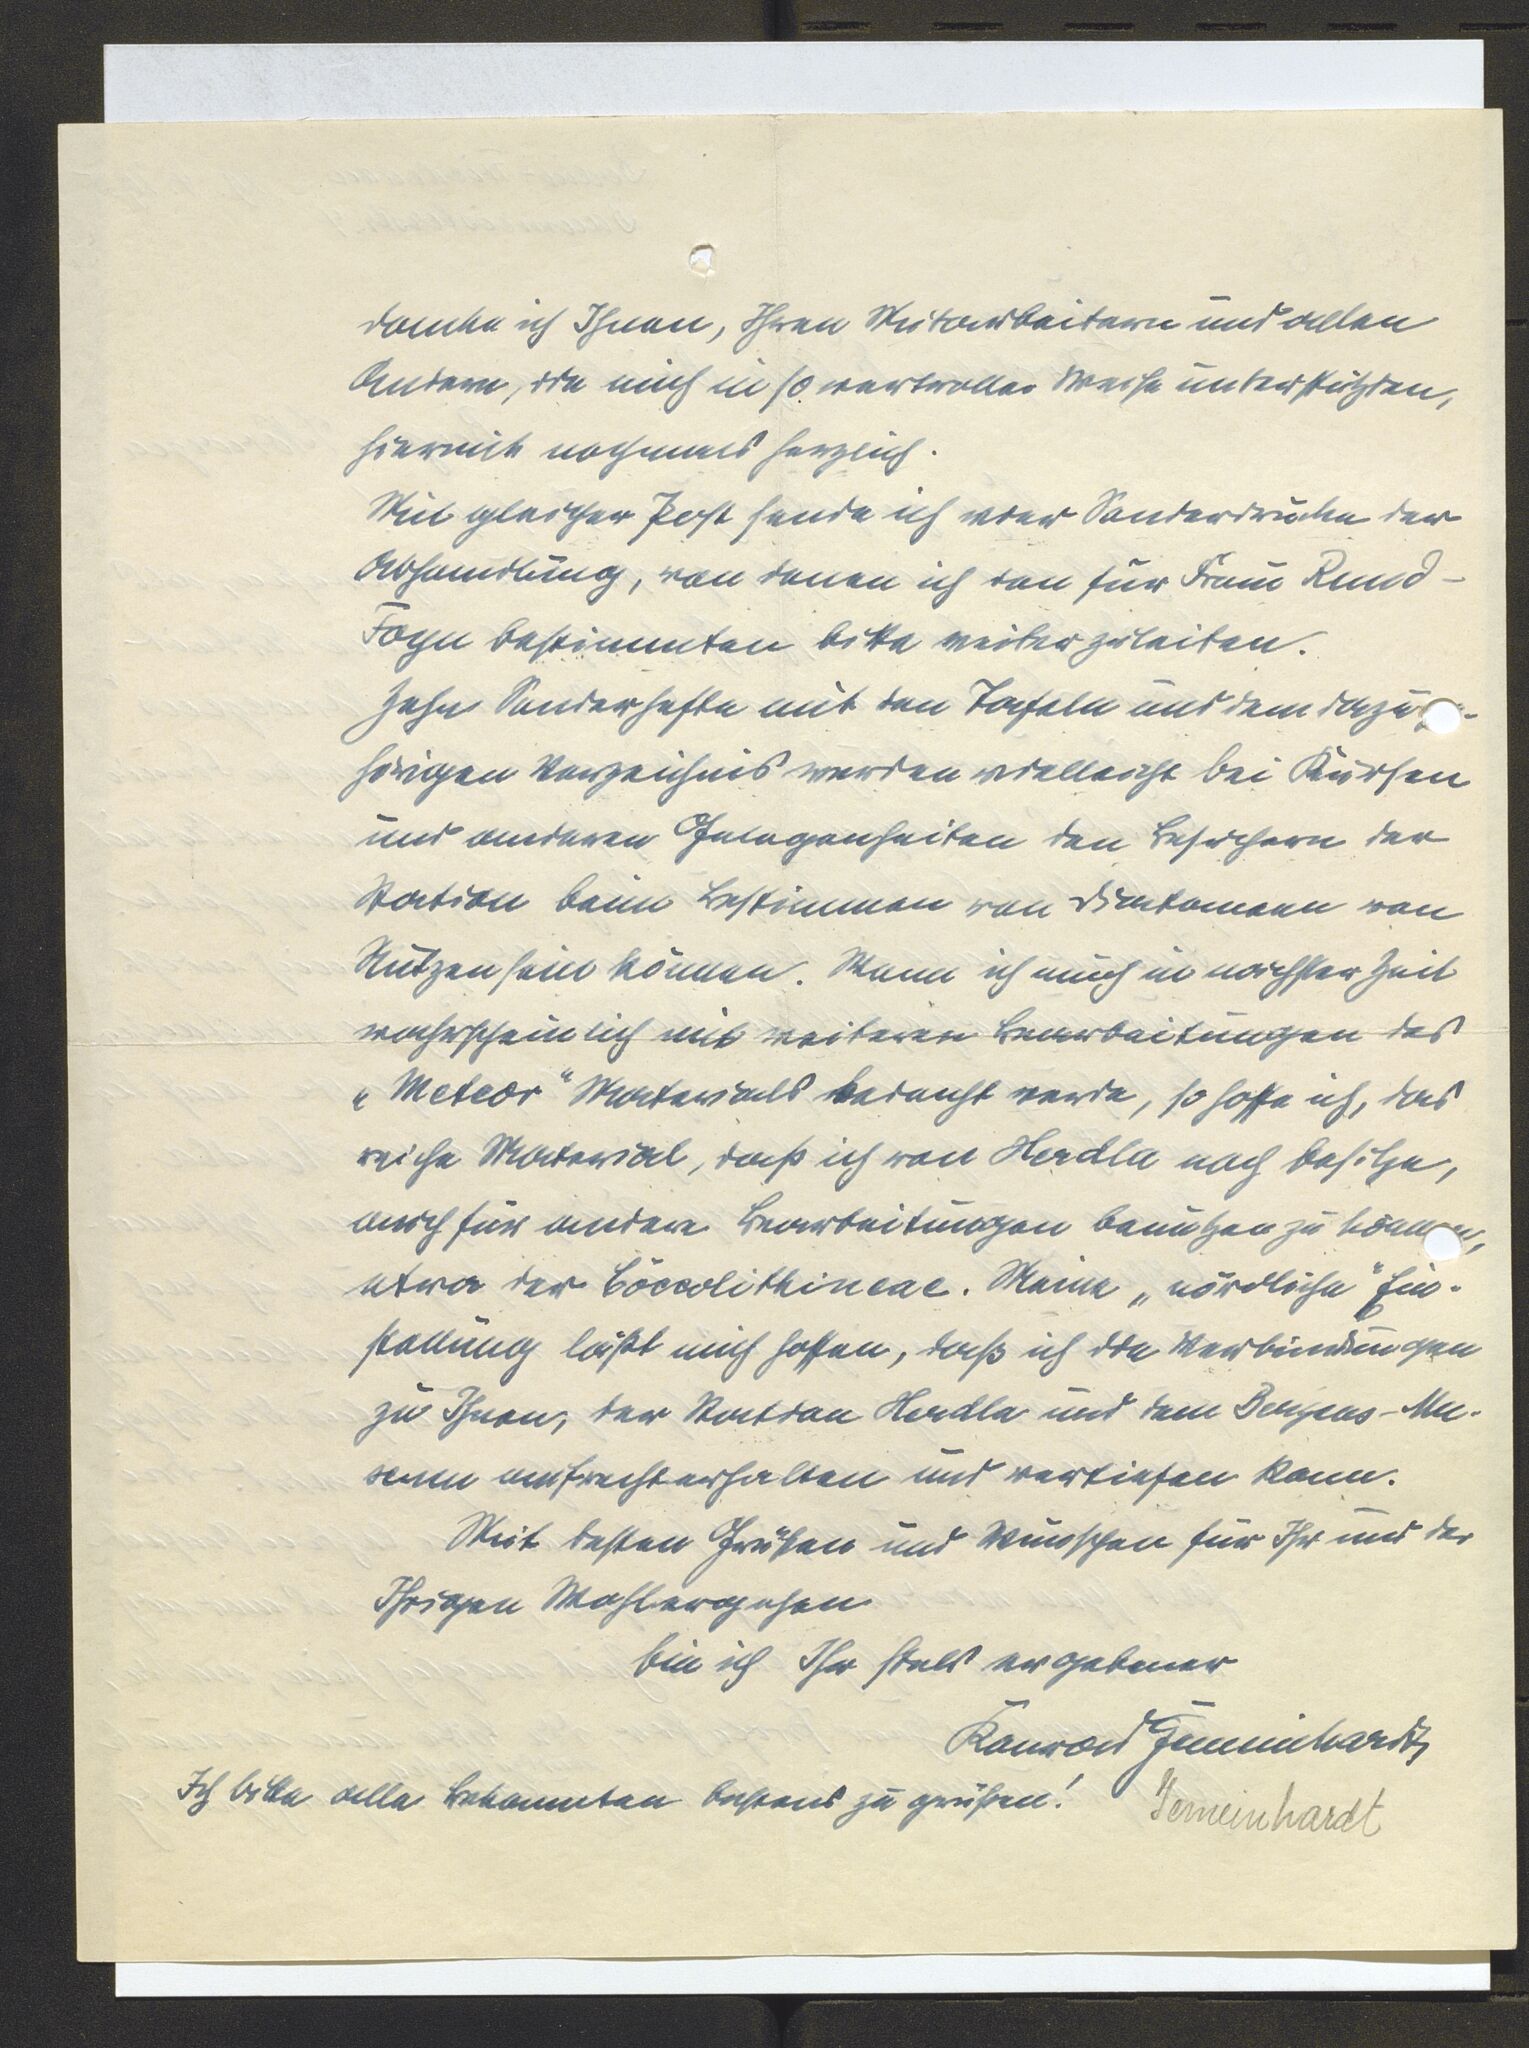 danke ich Ihnen, Ihren Mitarbeitern und allen
Andern, die mich in so wertvoller Weise unterstützten,
hiermit nochmals herzlich.
Mit gleicher Post sende ich vier Sonderdrucke der
Abhandlung, von denen ich den für Frau Ruud-
Föyn bestimmten bitte weiterzuleiten.
Zehn Sonderhefte mit den Tafeln und dem dazuge-
hörigen Verzeichnis werden vielleicht bei Kursen
und anderen Gelegenheiten den Besuchern der
Station beim Bestimmen von Diatomeen von
Nutzen sein können. Wenn ich auch in nächster Zeit
wahrscheinlich mit weiteren Bearbeitungen des
„Meteor“ Materials bedacht werde, so hoffe ich, das
reiche Material, daß ich von Herdla noch besitze,
auch für andere Bearbeitungen benutzen zu können,
etwa der Coccolithineae. Meine „nördliche“ Ein-
stellung läßt mich hoffen, daß ich die Verbindungen
zu Ihnen, der Station Herdla und dem Bergens-Mu-
seum aufrechterhalten und vertiefen kann.
Mit besten Grüßen und Wünschen für Ihr und der
Ihrigen Wohlergehen
bin ich Ihr stets ergebener
Konrad Gemeinhardt
Ich bitte alle Bekannten bestens zu grüßen!
Gemeinhardt